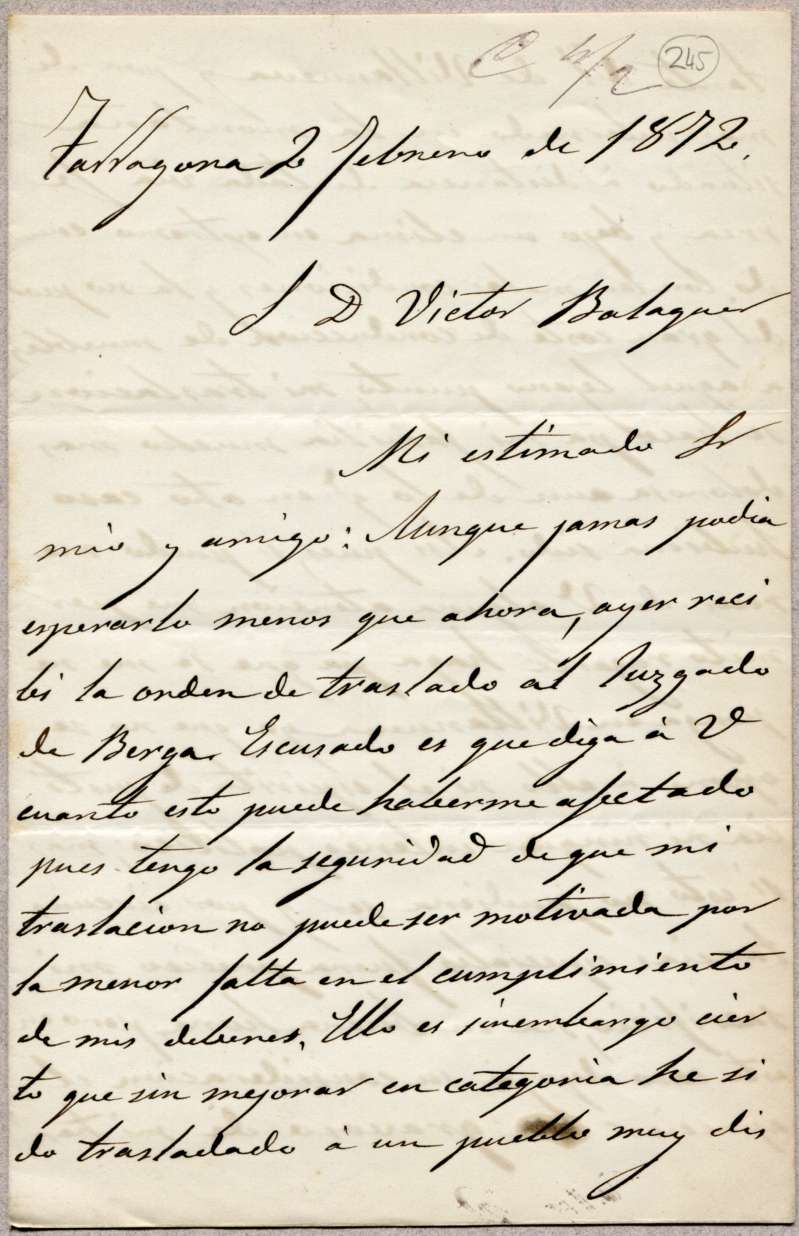 245
Tarragona 2 febrero de 1872.
S D Victor Balaguer
Mi estimado Sr
mio y amigo: Aunque jamas podia
esperarlo menos que ahora, ayer reci
bi la orden de traslado al Juzgado
de Berga. Escusado es que diga á V
cuanto esto puede haberme afectado
pues tengo la seguridad de que mi
traslacion no puede ser motivada por
la menor falta en el cumplimiento
de mis deberes. Ello es sinembargo cier
to que sin mejorar en categoria he si
do trasladado á un pueblo muy dis